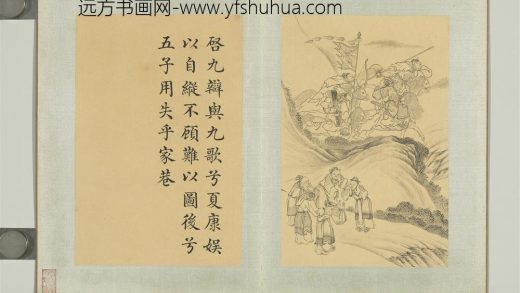 远方书画网-www.yfshuhua.com
啓九辯與九歌兮夏康娛
以自縱不顧難以圖後兮
五子用失乎家巷